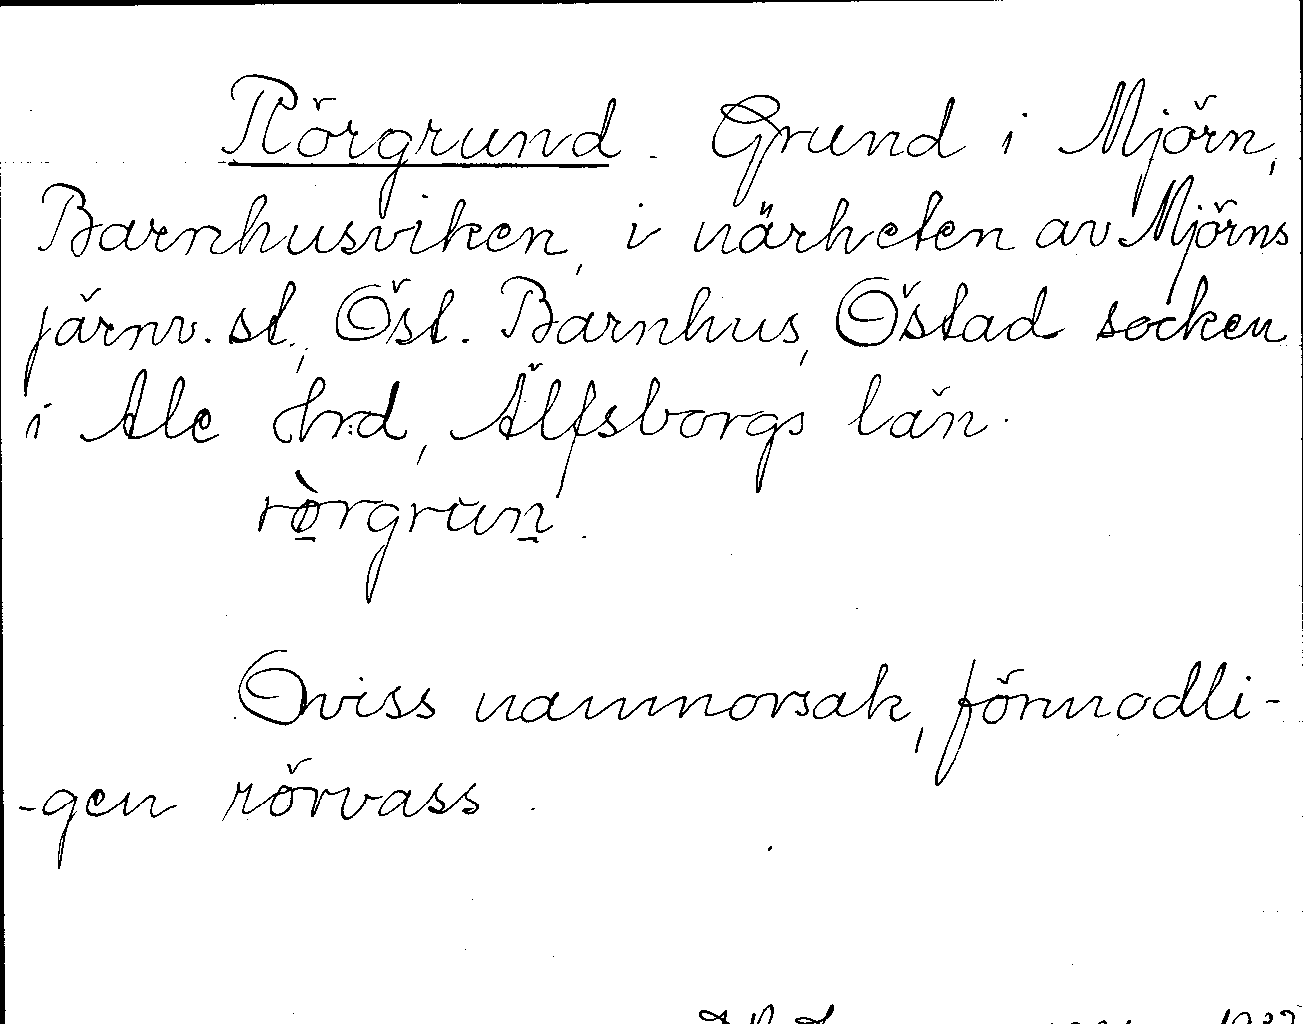 Rörgrund. Grund i Mjörn,
Barnhusviken, i närheten av Mjörns
järnv. st., Öst. Barnhus, Östad socken
i Ale hrd, Älfsborgs län.
rö̀rgrun.
Oviss namnorsak, förmodli-
-gen rörvass.